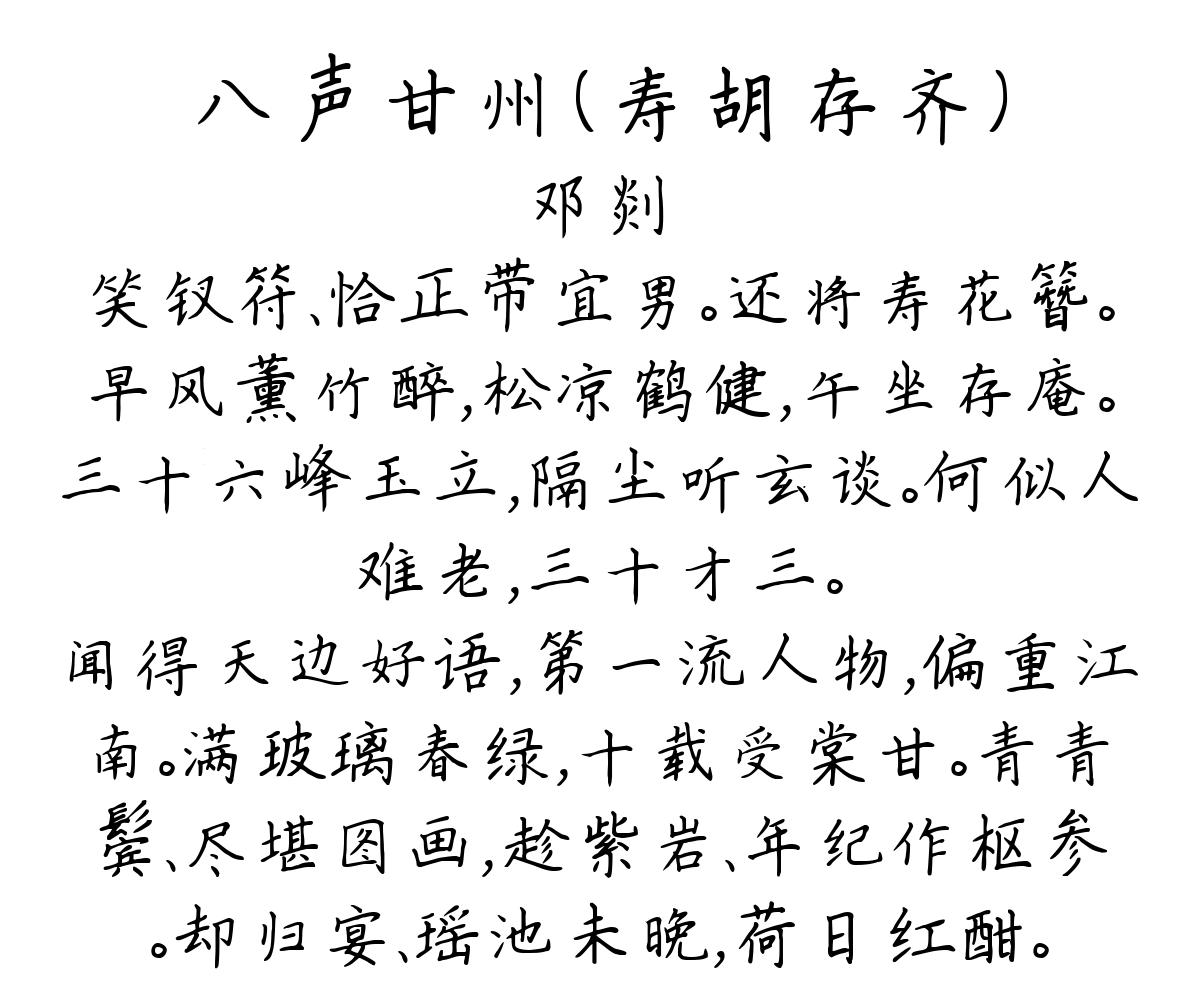 八声甘州(寿胡存齐)
邓剡
笑钗符、恰正带宜男。还将寿花簪。
早风薰竹醉,松凉鹤健,午坐存庵。
三十六峰玉立,隔尘听玄谈。何似人
难老,三十才三。
闻得天边好语,第一流人物,偏重江
南。满玻璃春绿,十载受棠甘。青青
鬓、尽堪图画,趁紫岩、年纪作枢参
。却归宴、瑶池未晚,荷日红酣。